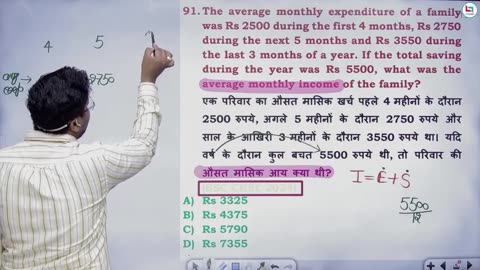 91. The average monthly expenditure of a family
was Rs 2500 during the first 4 months, Rs 2750
during the next 5 months and Rs 3550 during
the last 3 months of a year. If the total saving
during the year was Rs 5500, what was the
average monthly income of the family?
एक परिवार का औसत मासिक खर्च पहले 4 महीनों के दौरान
2500 रुपये, अगले 5 महीनों के दौरान 2750 रुपये और
साल के आखिरी 3 महीनों के दौरान 3550 रुपये था। यदि
वर्ष के दौरान कुल बचत 5500 रुपये थी, तो परिवार की
औसत मासिक आय क्या थी?
A) Rs 3325
B) Rs 4375
C) Rs 5790
D) Rs 7355
4 5
2750
I = E + S
5500
12